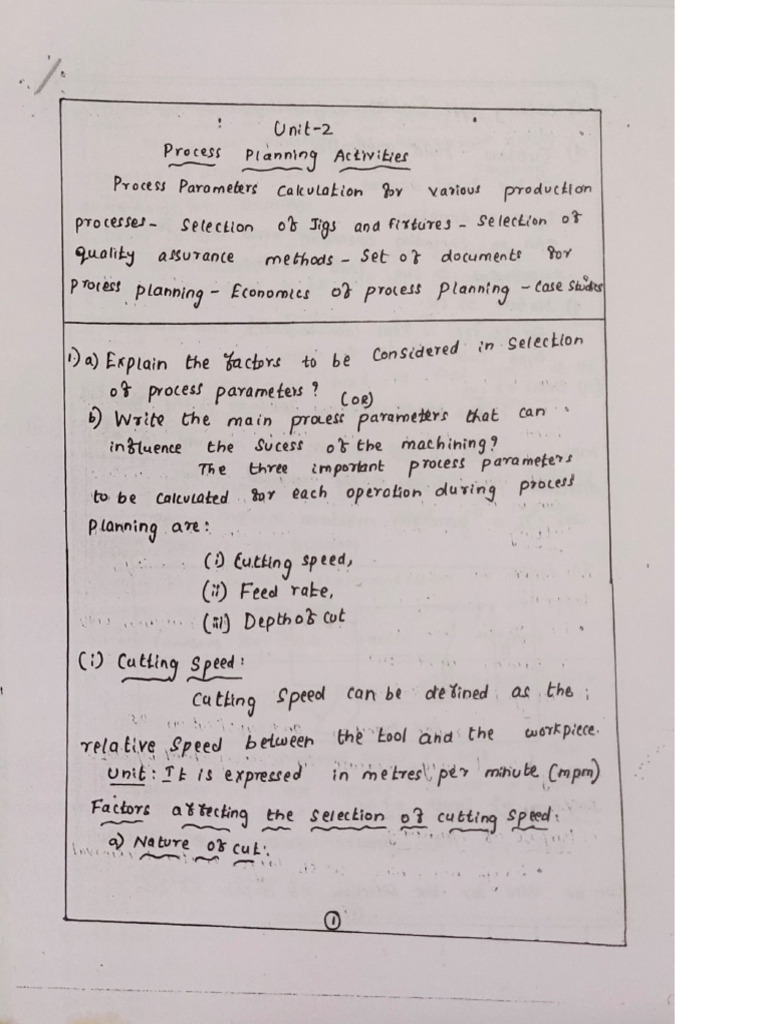 Unit-2
Process Planning Activities
Process Parameters calculation for various production
processes - Selection of Jigs and fixtures - Selection of
quality assurance methods - Set of documents for
process planning - Economics of process planning - case studies
1) a) Explain the factors to be considered in selection
of process parameters?
(OR)
b) Write the main process parameters that can
influence the sucess of the machining?
The three important process parameters
to be calculated for each operation during process
planning are:
(i) Cutting speed,
(ii) Feed rate,
(iii) Depth of cut
(i) Cutting Speed:
Cutting Speed can be defined as the
relative speed between the tool and the workpiece.
Unit: It is expressed in metres per minute (mpm)
Factors affecting the selection of cutting speed:
a) Nature of cut:
1